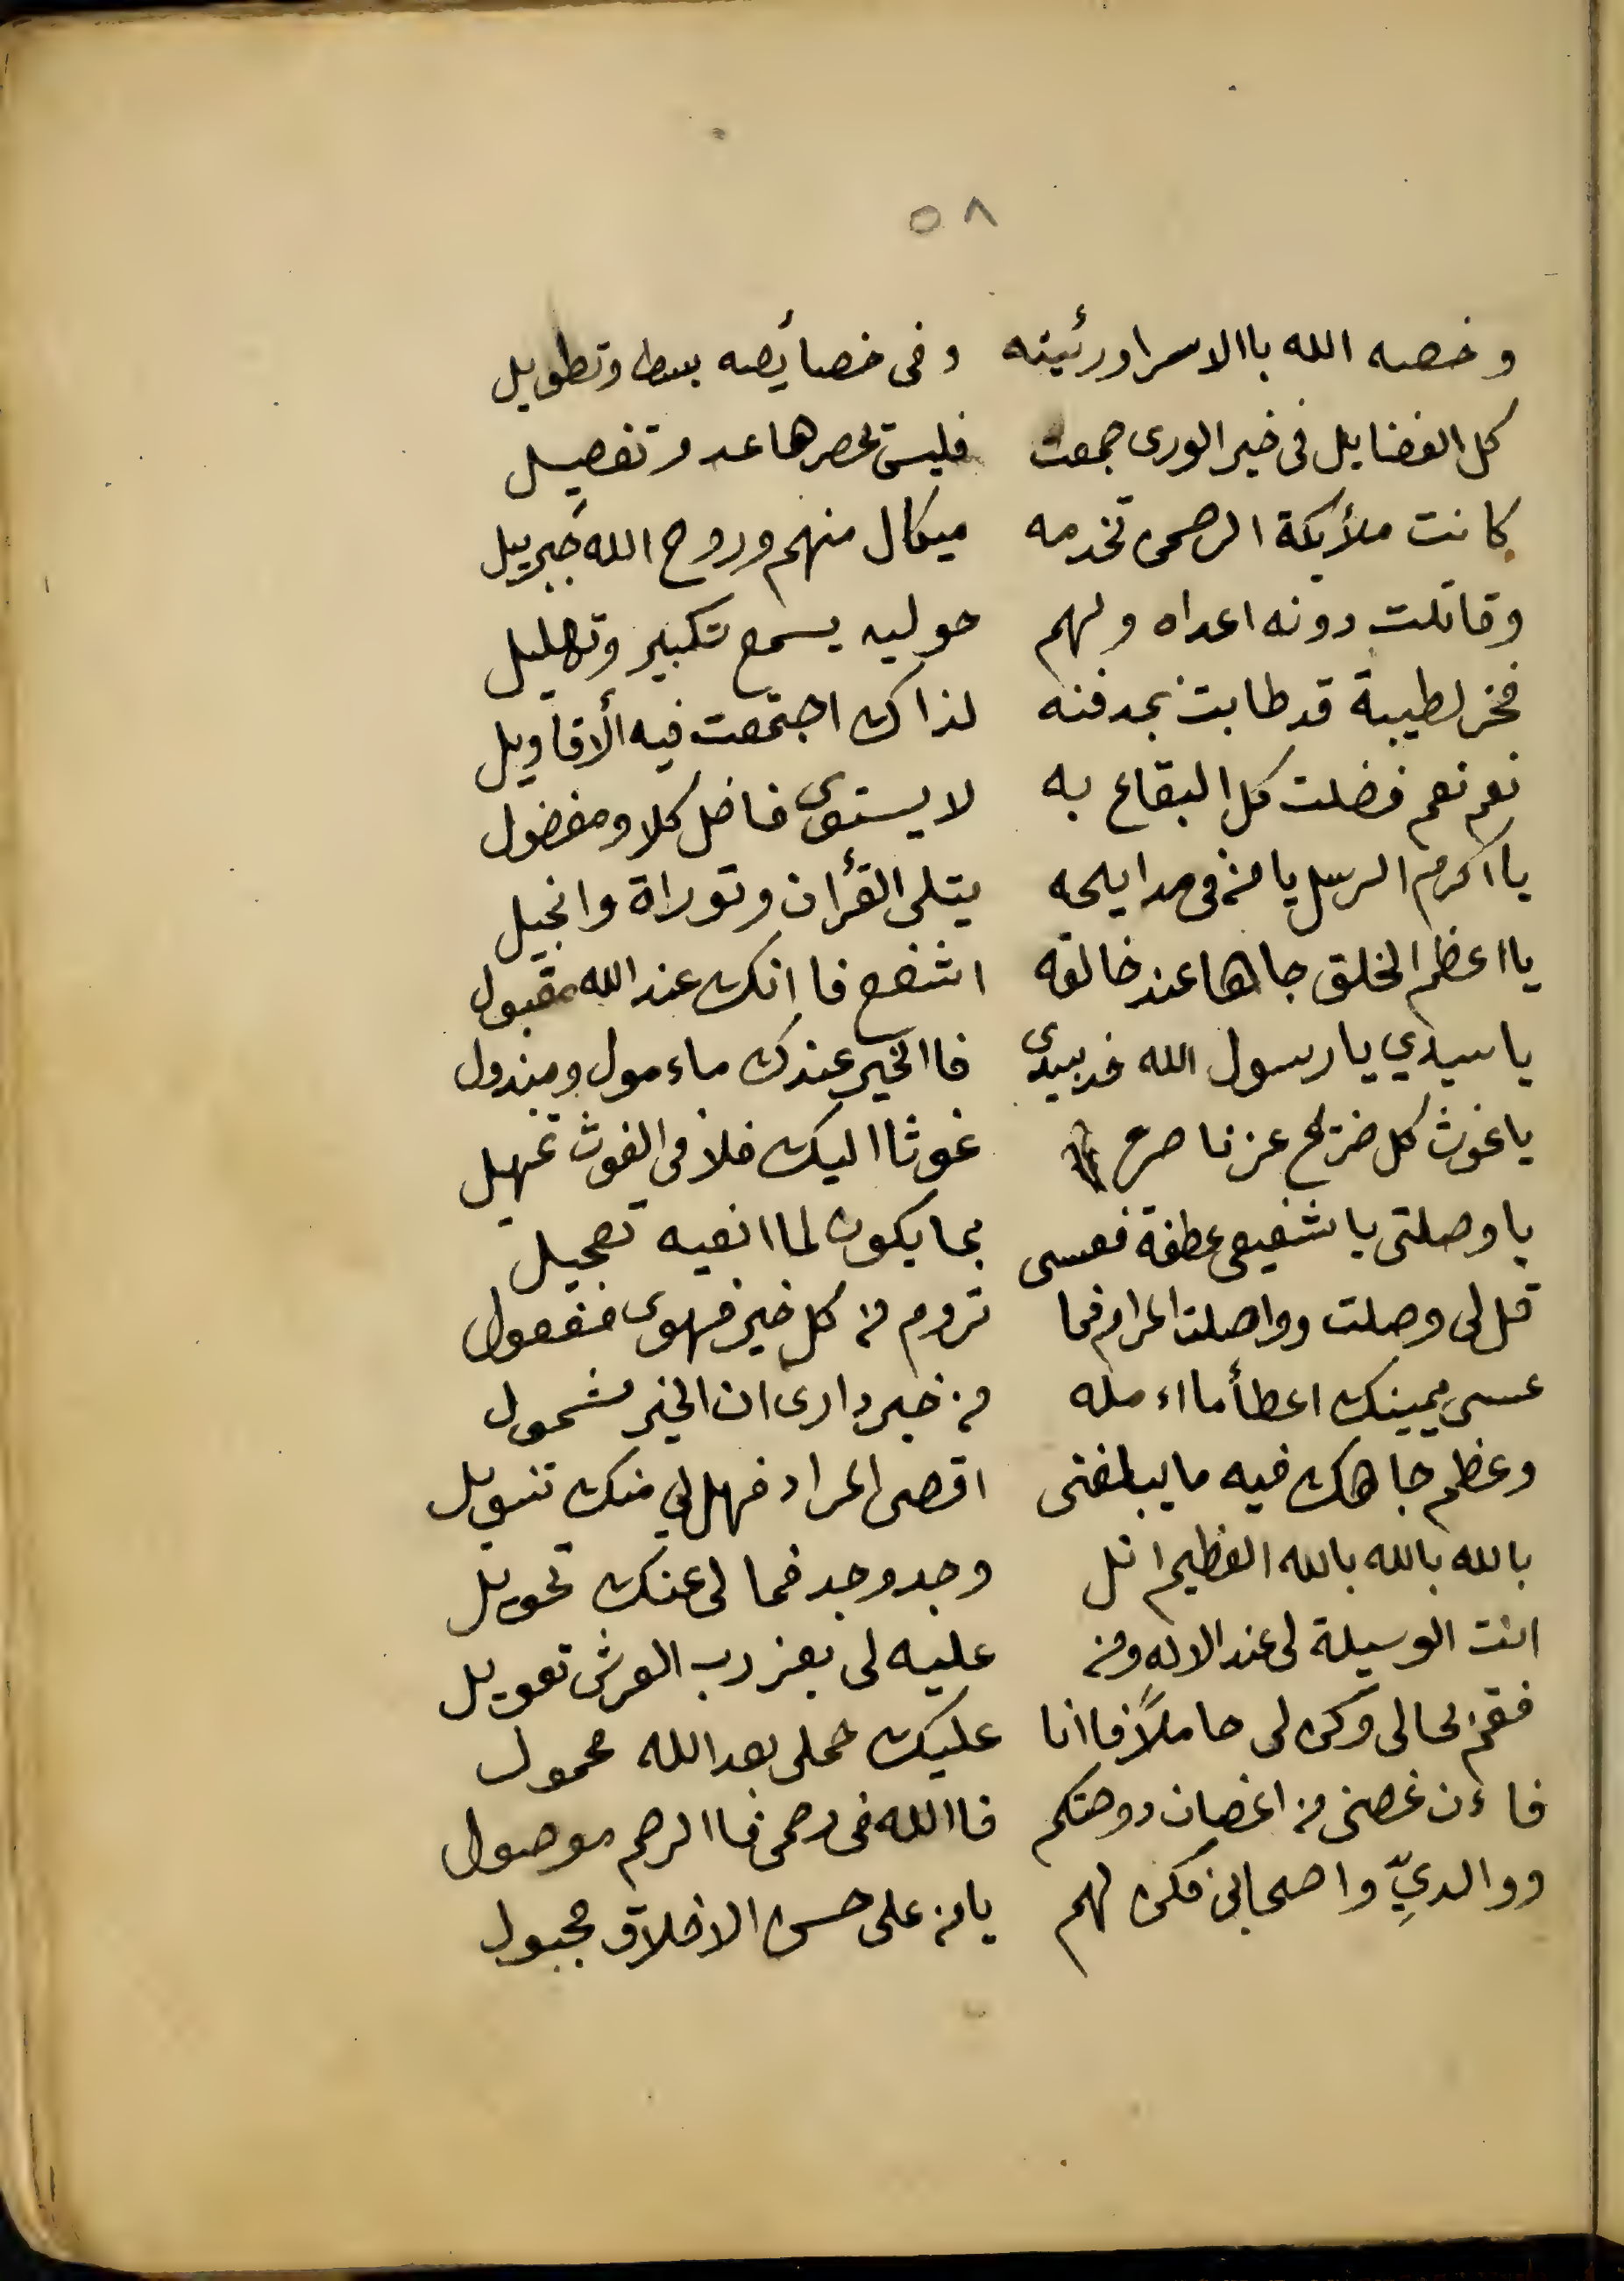 ٥٨
وخصه الله باالاسرا ورئيته وفى خصائصه بسط وتطويل
كل الفضايل فى خير الورى جمعت فليس تحصرها عد وتفصيل
كانت ملأيكة الرحمن تخدمه ميكال منهم وروح الله جبرييل
وقاتلت دونه اعداه ولهم حوليه يسمع تكبير وتهليل
فخر لطيبة قد طابت بمدفنه لذاك اجتمعت فيه الأقاويل
نعم نعم فضلت كل البقاع به لا يستوى فاضل كلا ومفضول
يا اكرم الرسل يا من فى مدايحه يتلى القرأن وتوراة وانجيل
يا اعظم الخلق جاها عند خالقه اشفع فا انك عند الله مقبول
يا سيدي يا رسول الله خد بيدى فا الخير عندك ماءمول ومبذول
يا غوث كل ضريح عز ناصره غوثا اليك فلا فى الغوث تمهيل
يا وصلتى يا شفيعى عطفة فعسى بما يكون لما انعيه تعجيل
قل لى وصلت وواصلت المرام فما تروم من كل خير فهوى مفعول
عسى يمينك اعطأ ما اءمله من خير دارى ان الخير مشمول
وعظم جاهك فيه ما يبالغنى اقصى المراد فهل لي منك تنويل
بالله بالله بالله العظيم انل وجد وجد فما لى عنك تحويل
انت الوسيلة لى عند الاله ومن عليه لى بعز رب العرش تعويل
فقم بحالى وكن لى حاملاً فا انا عليك حملى بعد الله محمول
فاءن غصنى من اغصان دوحتكم فا الله فى رحمى فا الرحم موصول
ووالديّ واصحابى فكن لهم يا من على حسن الاخلاق مجبول